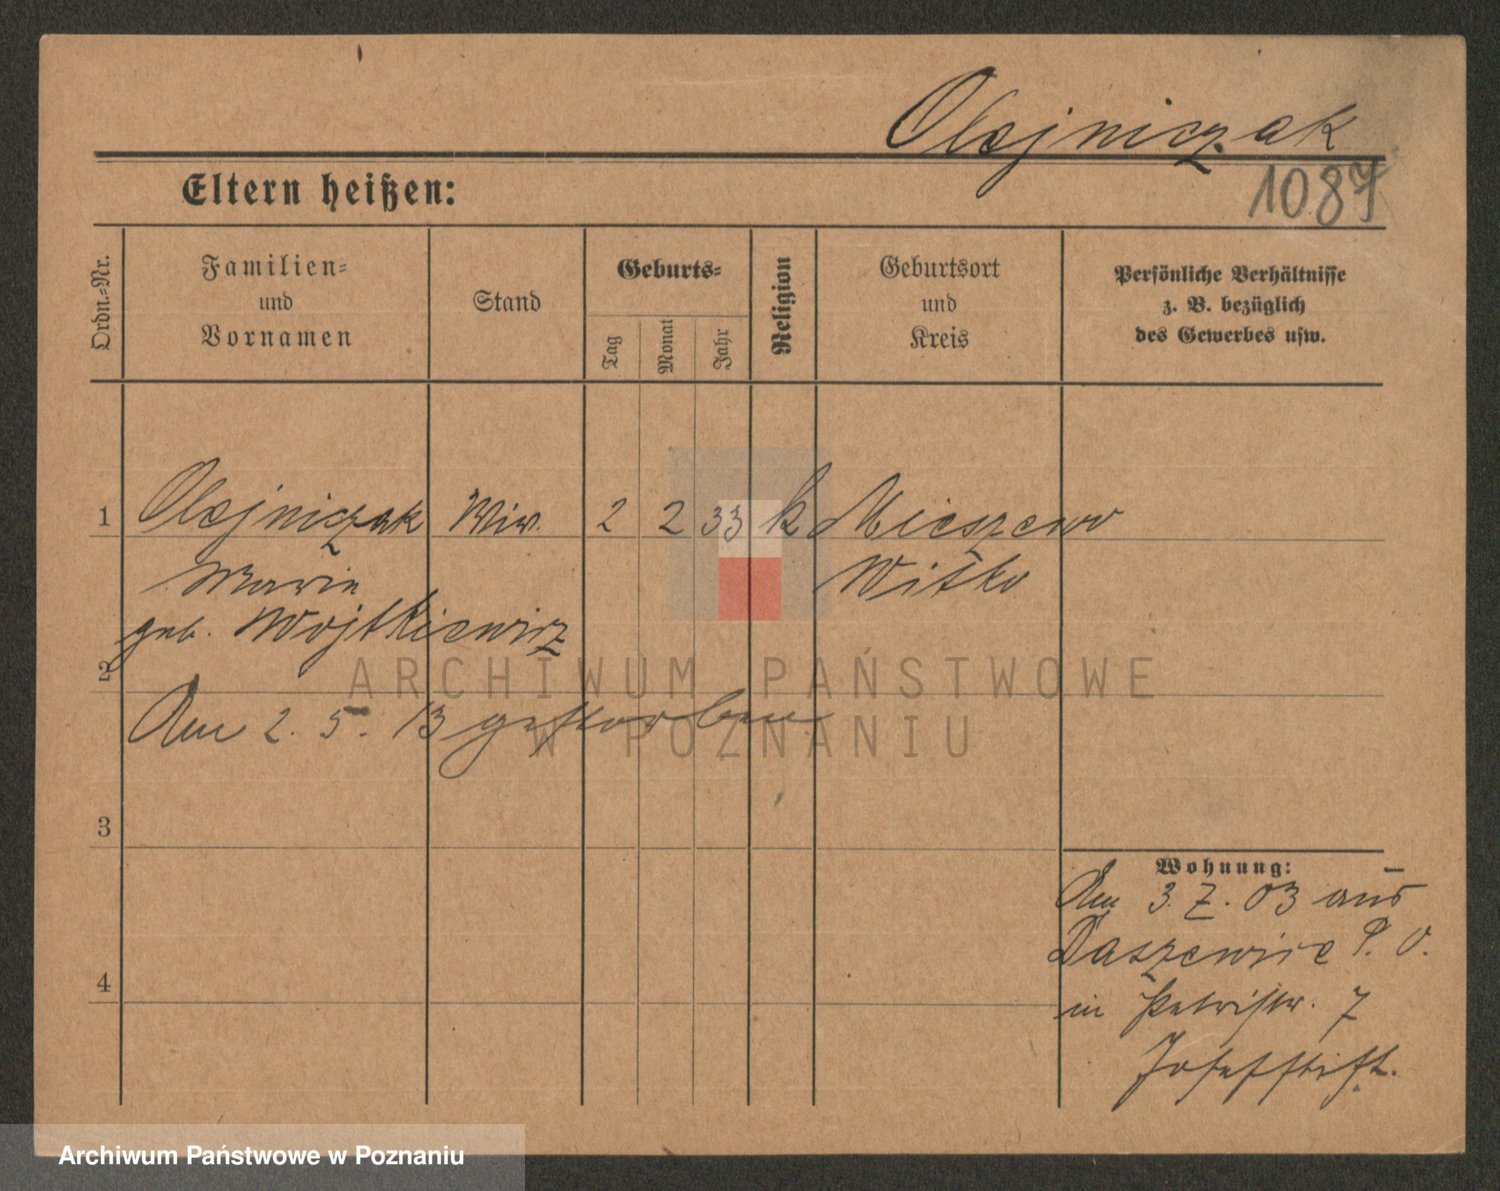 Olejniczak
1087
Eltern heißen:
Ordn.-Nr.
Familien-
und
Vornamen
Stand
Geburts-
Tag
Monat
Jahr
Religion
Geburtsort
und
Kreis
Persönliche Verhältnisse
z. B. bezüglich
des Gewerbes usw.
1 Olejniczak Wiw. 2 2 33 k Mieszewo
Marie Witko
geb. Wojtkiewicz
2
Am 2. 5. 13 gestorben
3
Wohnung:
Am 3. 7. 03 aus
Daszewice P. O.
4
in Petristr. 7
Josefstift.
ARCHIWUM PAŃSTWOWE
W POZNANIU
Archiwum Państwowe w Poznaniu